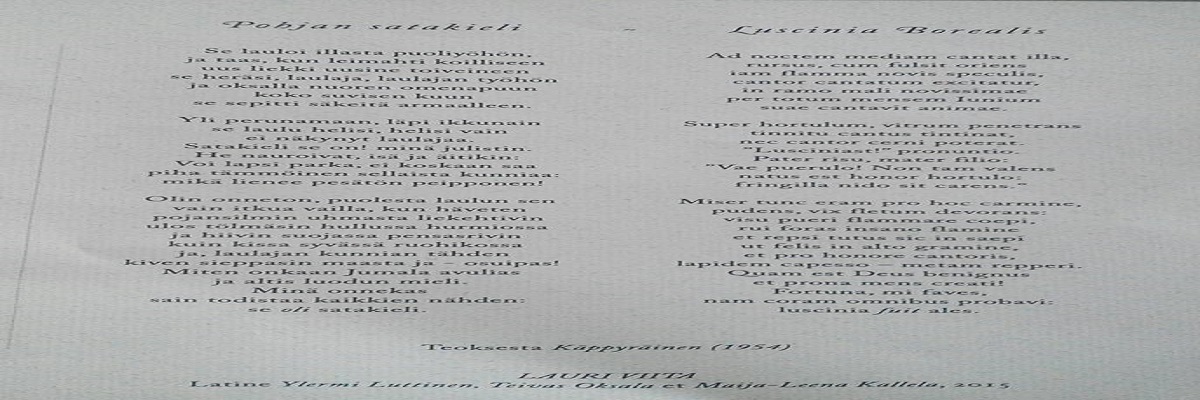 Pohjan satakieli
Se lauloi illasta puoliyöhön,
ja taas, kun leimahti koilliseen
uus liekki uusine toiveineen
se heräsi, laulaja, laulajan työhön
ja oksalla nuoren omenapuun
koko suvisen kuun
se sepitti säkeitä armaalleen.
Yli perunamaan, läpi ikkunain
se laulu helisi, helisi vain
ei näkynyt laulajaa.
Satakieli se on! minä julistin.
He nauroivat, isä ja äitikin:
Voi lapsi parka, ei koskaan saa
piha tämmöinen sellaista kunniaa:
mikä lienee pesätön peipponen!
Olin onneton, puolesta laulun sen
vain itkua vailla, kun häveten
pojansilmin uhmasta liekehtivin
ulos tölmäsin hullussa hurmiossa
ja hiivin suojassa pensasrivin
kuin kissa syvässä ruohikossa
ja, laulajan kunnian tähden,
kiven sieppasin maasta ja – osuipas!
Miten onkaan Jumala avulias
ja altis luodun mieli.
Minä onnekas
sain todistaa kaikkien nähden:
se oli satakieli.
~
Luscinia Borealis
Ad noctem mediam cantat illa,
rursus, cum fulsit oriens
iam flamma novis speculis,
cantor cantatum excitatur,
in ramo mali novissimae
per totum mensem Iunium
suae cantavit animae.
Super hortulum, vitrum penetrans
tinnitu cantus tintinat,
nec cantor cerni poterat.
"Lusciniast!" pronuntio.
Pater risu, mater filio:
"Vae puerulo! Non tam valens
natus est honor hortulo:
fringilla nido sit carens."
Miser tunc eram pro hoc carmine,
pudens, vix fletum devorans:
visu pueri flammare coepi,
rui foras insano flamine
et repsi tutus sic in saepi
ut felis in alto gramine,
et pro honore cantoris,
lapidem capesso – metam repperi.
Quam est Deus benignus
et prona mens creati!
Fortuna, mi faves,
nam coram omnibus probavi:
luscinia fuit ales.
Teoksesta Käppyräinen (1954)
LAURI VIITA
Latine Ylermi Luttinen, Teivas Oksala et Maija-Leena Kallela, 2015